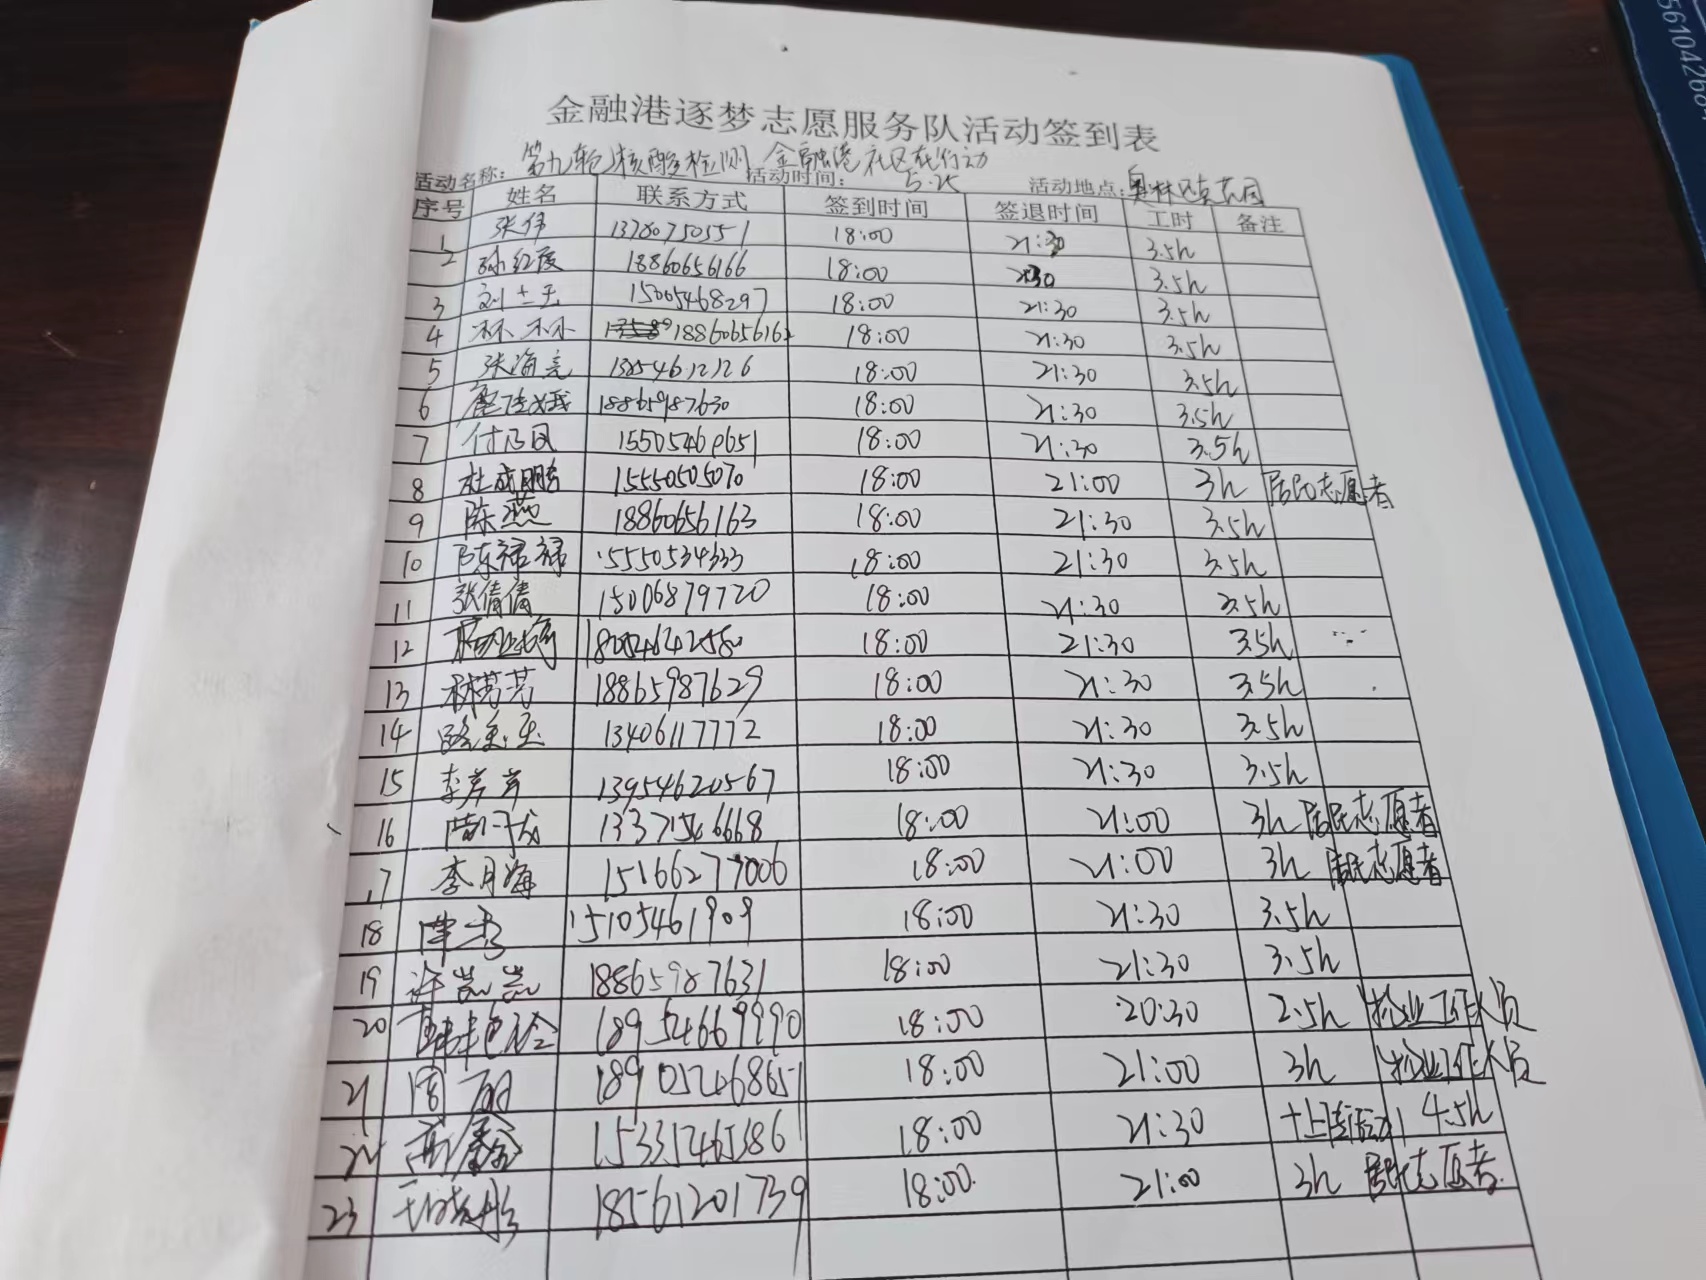 金融港逐梦志愿服务队活动签到表
活动名称: 第九轮核酸检测 金融港社区在行动
活动时间: 5.25 活动地点:
序号 姓名 联系方式 签到时间 签退时间 工时 备注
1 张伟 13780750551 18:00 21:30 3.5h
2 孙红霞 18860656166 18:00 3.5h
3 刘士玉 15005468297 18:00 21:30 3.5h
4 林林 18860656162 18:00 21:30 3.5h
5 张海亮 18:00 21:30 3.5h
6 18865987630 18:00 21:30 3.5h
7 付乃凤 18:00 21:30 3.5h
8 杜成鹏 15550505070 18:00 21:00 3h 居民志愿者
9 陈燕 18860656163 18:00 21:30 3.5h
10 陈禄禄 15550534333 18:00 21:30 3.5h
11 张倩倩 15006879720 18:00 21:30 3.5h
12 18:00 21:30 3.5h
13 林芳芳 18865987629 18:00 21:30 3.5h
14 13406117772 18:00 21:30 3.5h
15 李芹芹 13954620567 18:00 21:30 3.5h
16 13371546668 18:00 21:00 3h 居民志愿者
17 李月海 15166277006 18:00 21:00 3h 居民志愿者
18 15105461909 18:00 21:30 3.5h
19 许岚岚 18865987631 18:00 21:30 3.5h
20 韩艳玲 18954669990 18:00 20:30 2.5h 物业工作人员
21 周丽 18905468651 18:00 21:00 3h 物业工作人员
22 高鑫 18:00 21:30 4.5h
23 18561201739 18:00 21:00 3h 居民志愿者